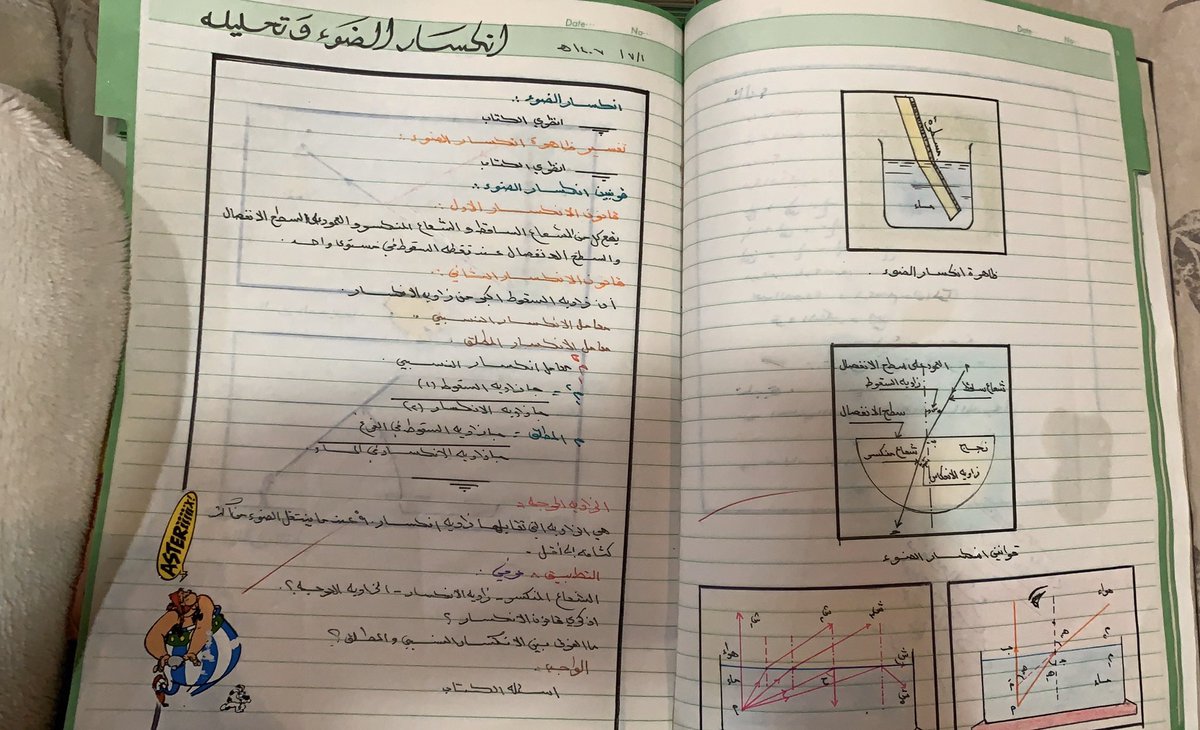 انكسار الضوء وتحليله
Date
No
١/٧/ ١٤٠٧هـ
انكسار الضوء :.
انظري الكتاب
تفسير ظاهرة انكسار الضوء :.
انظري الكتاب
قوانين انكسار الضوء :.
قانون الانكسار الأول :.
يقع كل من الشعاع الساقط والشعاع المنكسر والعمود على السطح الانفصال
والسطح الانفصال عند نقطة السقوط في مستوى واحد .
قانون الانكسار الثاني :.
أن زاويه السقوط اكبر من زاويه الانكسار .
معامل الانكسار النسبي .
معامل الانكسار المطلق .
م٢ معامل انكسار النسبي
٢م١ = جا زاويه السقوط (١)
جا زاويه الانكسار (٢)
م المطلق = جا زاويه السقوط في الفرغ
جا زاويه الانكسار في الماده
الزاويه الحرجه :
هي الزاويه التي تقابلها زاويه انكسار ٩٠ْ عندما ينتقل الضوء من اكثر
كثافه الى اقل .
التطبيق : عرفي
الشعاع المنكسر - زاويه الانكسار - الزاويه الحرجه ؟.
اذكري قانون الانكسار ؟
ما الفرق بين الانكسار النسبي والمطلق ؟
الواجب :
اسئله الكتاب
ASTERiiiiiX!
Date
No
ماء
ظاهرة انكسار الضوء
العمود على سطح الانفصال
زاويه السقوط
شعاع ساقط
سطح الانفصال
زجاج
شعاع منكسر
زاويه الانكسار
قوانين انكسار الضوء
هواء
ماء
هواء
ماء